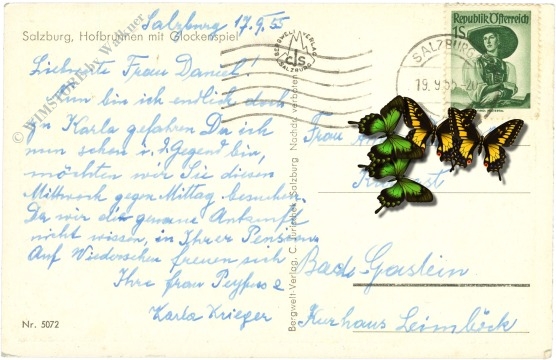 Salzburg 17.9.55
Salzburg, Hofbrunnen mit Glockenspiel
Liebwerte Frau Daniel!
nun bin ich endlich doch
zu Karla gefahren. Da ich
nun schon i. d. Gegend bin,
möchten wir Sie diesen
Mittwoch gegen Mittag besuchen.
Da wir die genaue Ankunft
nicht wissen, in Ihrer Pension
Auf Wiedersehen freuen sich
Ihre Frau
Karla Krieger
Nr. 5072
© WIMSTORIE by Wallner
Bergwelt-Verlag, C. Jurischek, Salzburg Nachdr. verboten
BERGWELT-VERLAG
CJS
SALZBURG
SALZBURG
19.9.55-20
Republik Österreich
1S
Frau
Bad Gastein
Kurhaus Leimböck